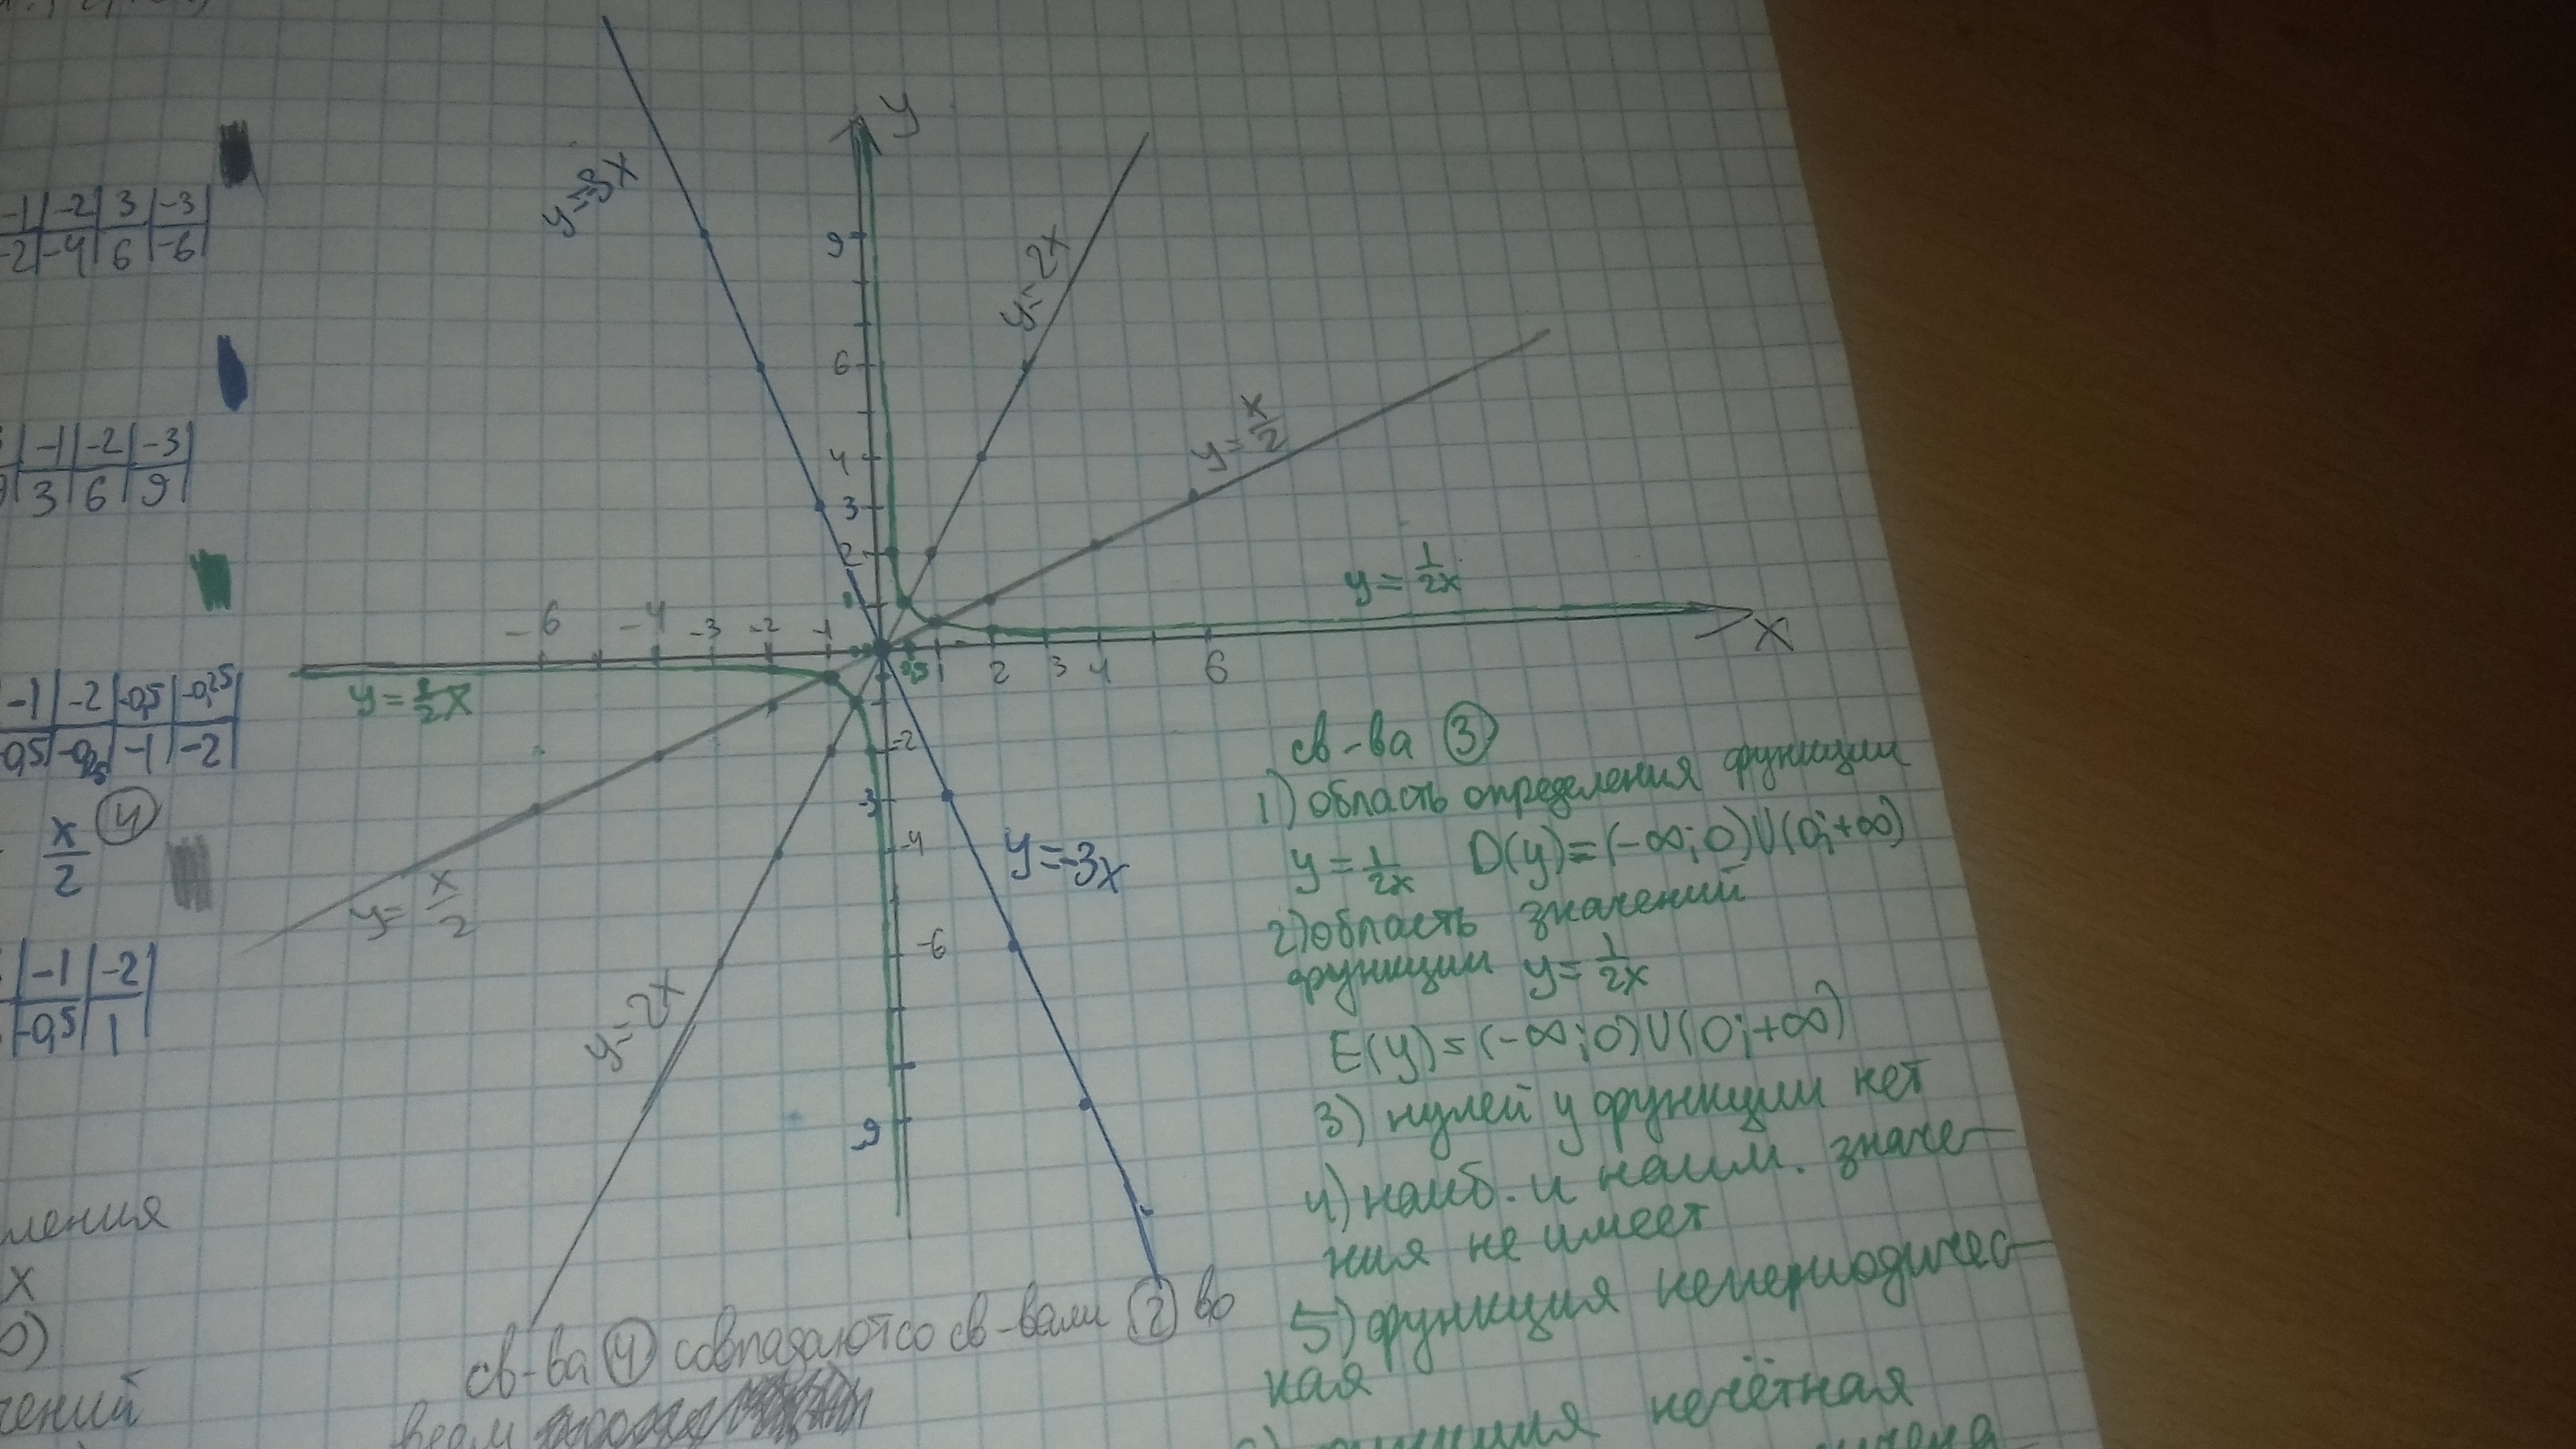 -1 -2 3 -3
-2 -4 6 -6
-1 -2 -3
3 6 9
-1 -2 -0,5 -0,25
-0,5 -1 -2
x/2 ④
-1 -2
-0,5 1
ления
x
чений
y
y=-3x
y=2x
9
6
y=x/2
4
3
2
y=1/2x
-6 -4 -3 -2 -1
0,5 1 2 3 4 6
x
-2
-3
-4
y=-3x
y=x/2
-6
y=2x
-9
св-ва ④ совпадают со св-вами ② во
всём
св-ва ③
1) область определения функции
y=1/2x D(y)=(-∞;0)U(0;+∞)
2) область значений
функции y=1/2x
E(y)=(-∞;0)U(0;+∞)
3) нулей у функции нет
4) наиб. и наим. значе-
ния не имеет
5) функция непериодичес-
кая
нечётная